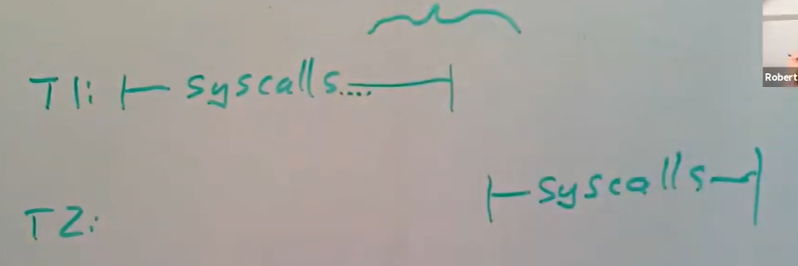 T1: |— syscalls....——|
T2: |—syscalls—|
Robert